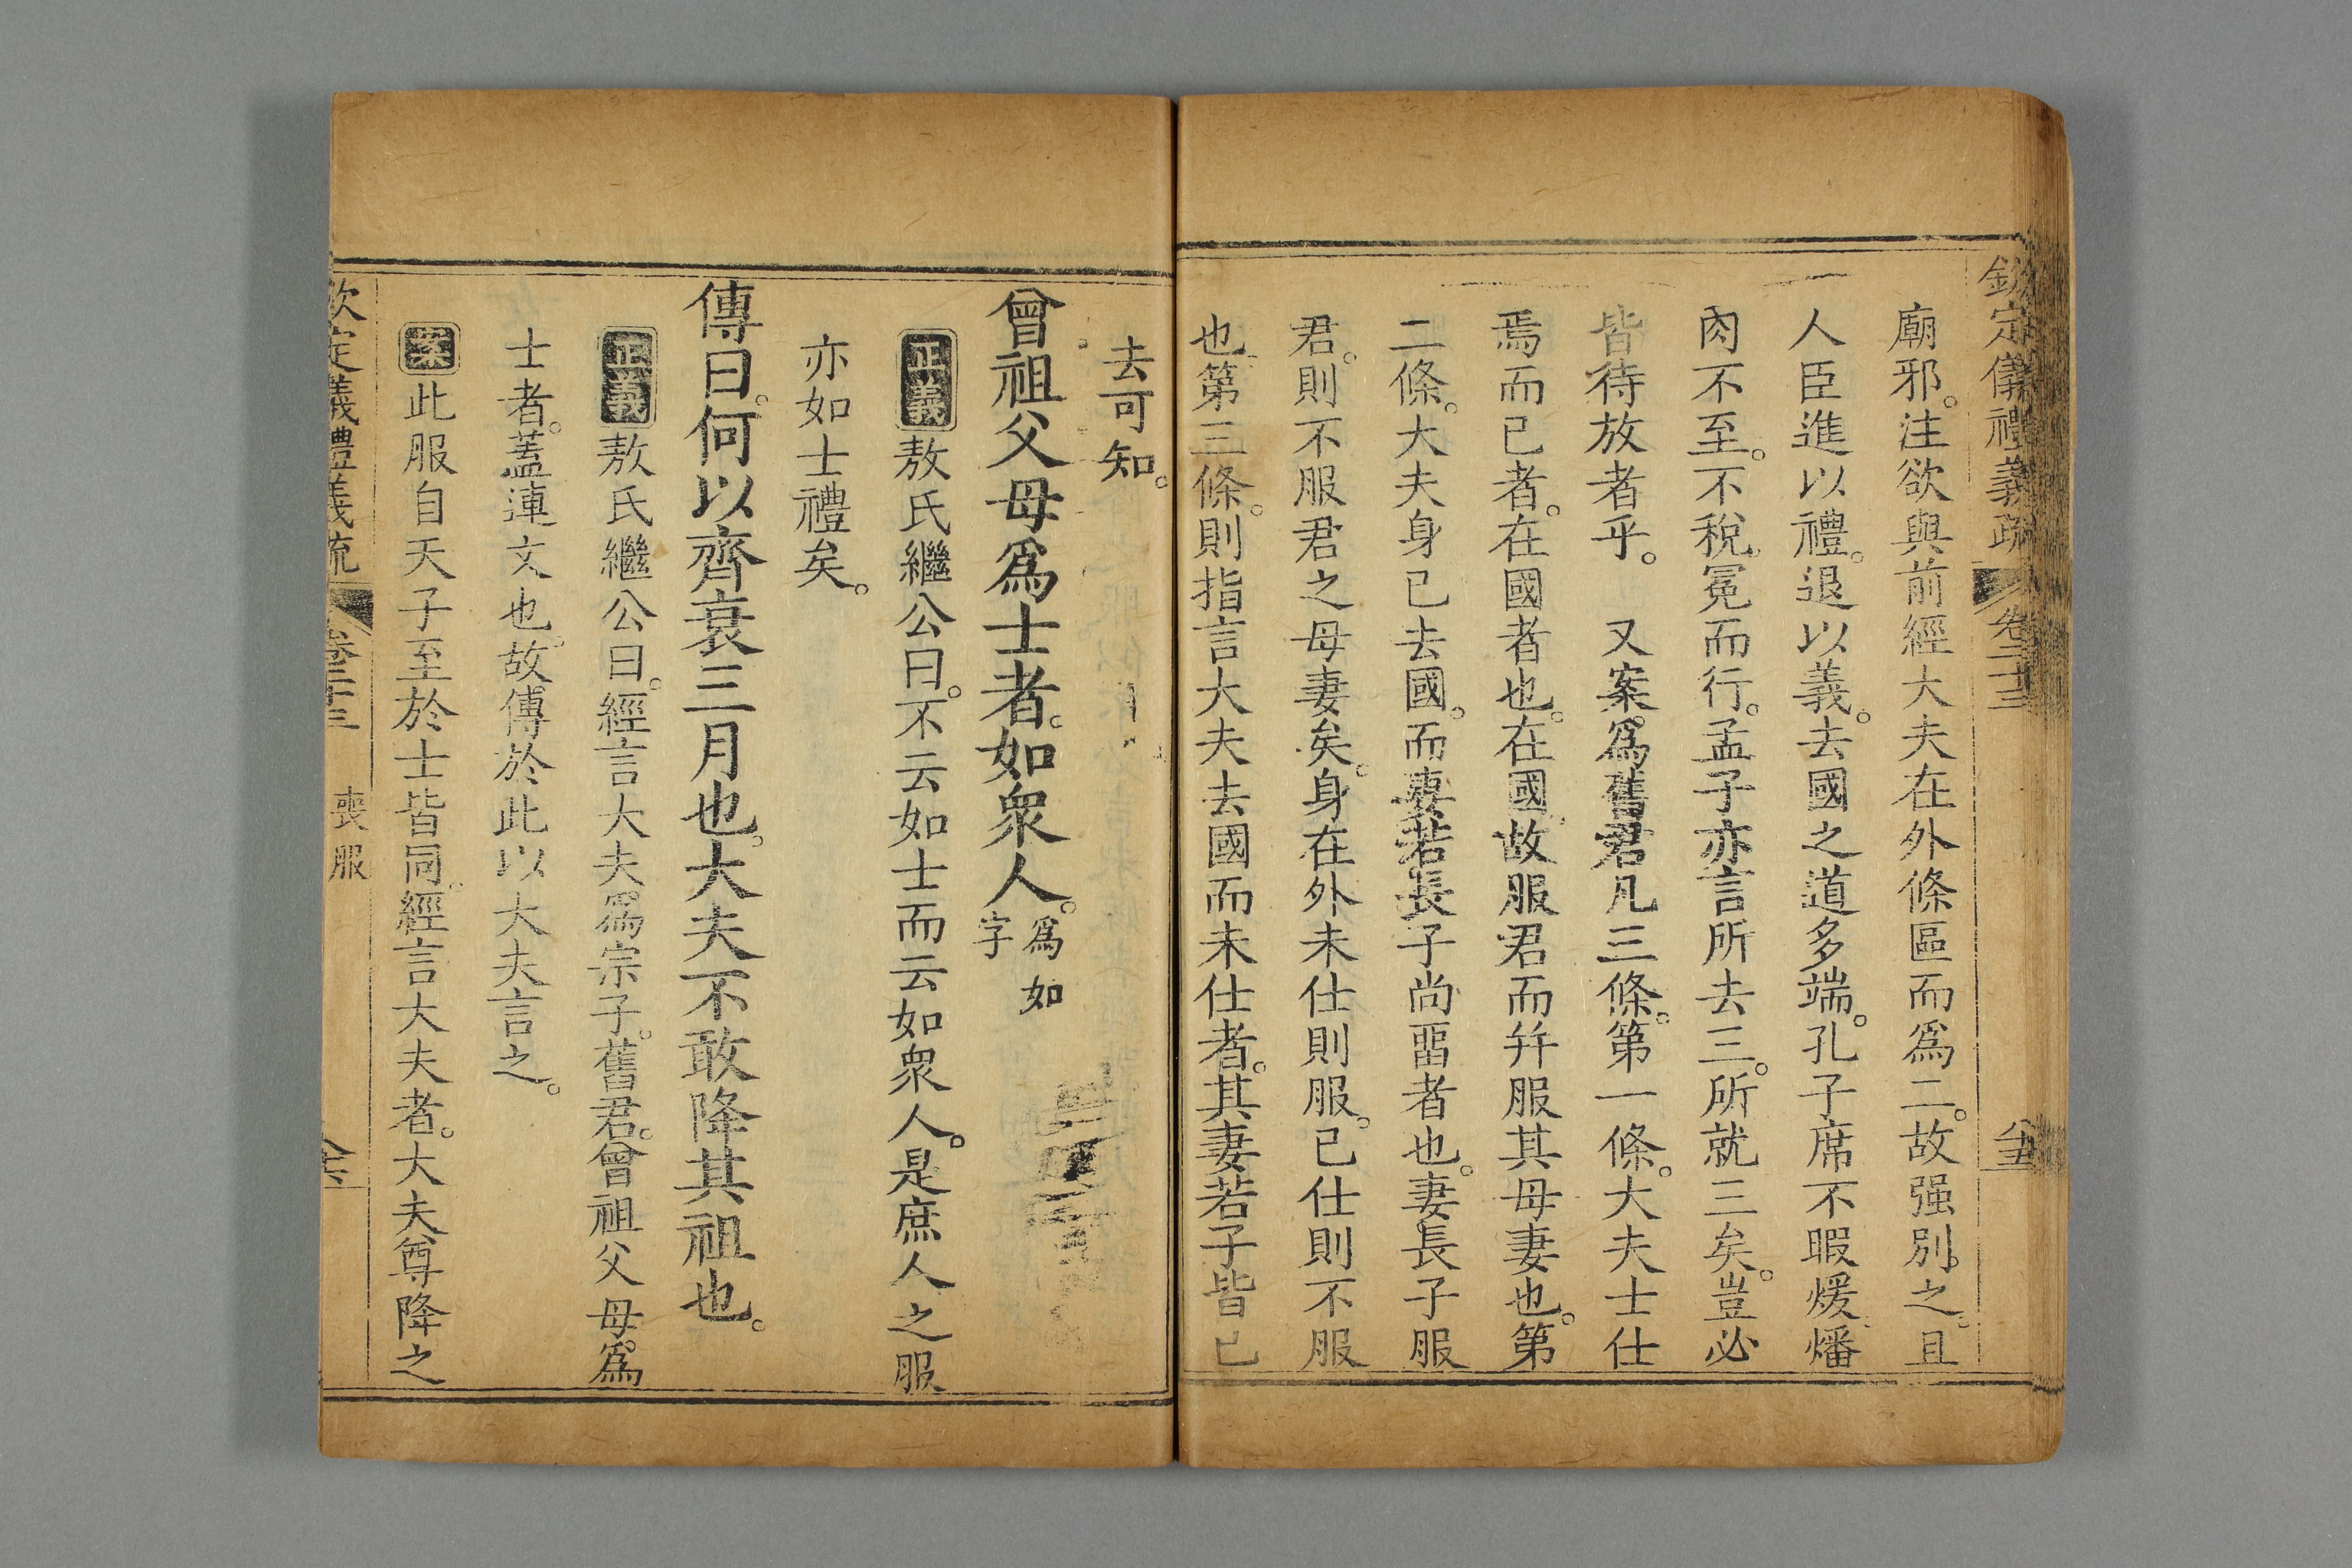 欽定儀禮義疏 卷二十三 八十五
廟邪。注欲與前經大夫在外條區而爲二。故强別之。且
人臣進以禮。退以義。去國之道多端。孔子席不暇煖。燔
肉不至。不稅冕而行。孟子亦言所去三。所就三矣。豈必
皆待放者乎。　又案。爲舊君凡三條。第一條。大夫士仕
焉而已者。在國者也。在國。故服君而幷服其母妻也。第
二條。大夫身已去國。而妻若長子尚畱者也。妻長子服
君。則不服君之母妻矣。身在外未仕則服。已仕則不服
也。第三條。則指言大夫去國而未仕者。其妻若子皆已
去可知。
曾祖父母爲士者。如衆人。爲如字
正義 敖氏繼公曰。不云如士而云如衆人。是庶人之服
亦如士禮矣。
傳曰。何以齊衰三月也。大夫不敢降其祖也。
正義 敖氏繼公曰。經言大夫爲宗子。舊君。曾祖父母。爲
士者。蓋連文也。故傳於此以大夫言之。
案 此服自天子至於士皆同。經言大夫者。大夫尊降之
欽定義禮義疏 卷二十三 喪服 八十六